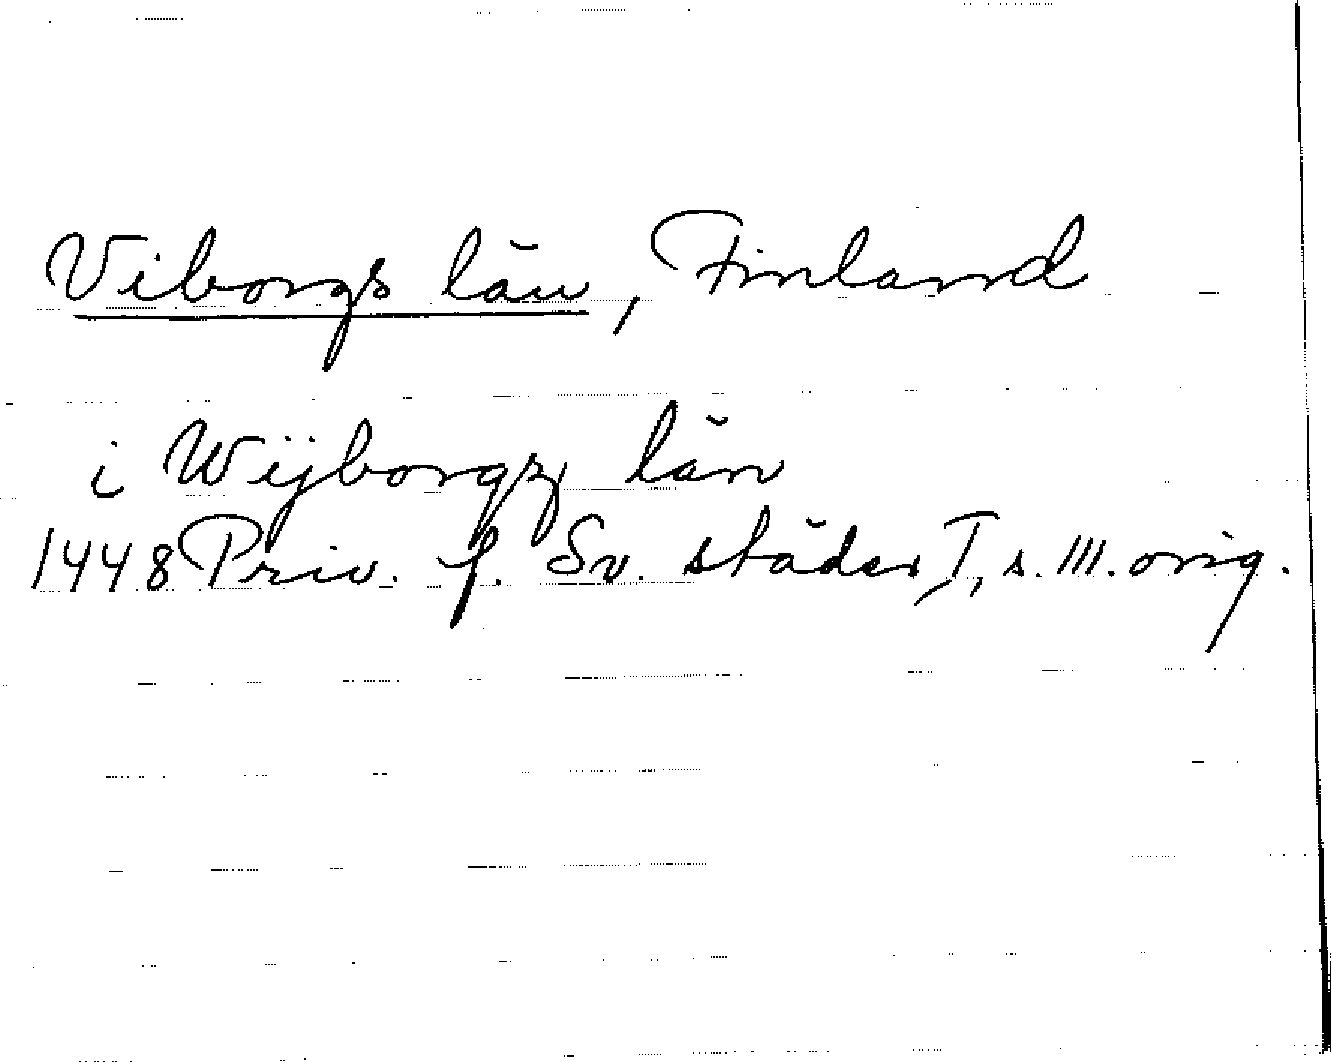 Viborgs län, Finland
i Wijborgz län
1448 Priv. f. Sv. städer I, s. 111. orig.